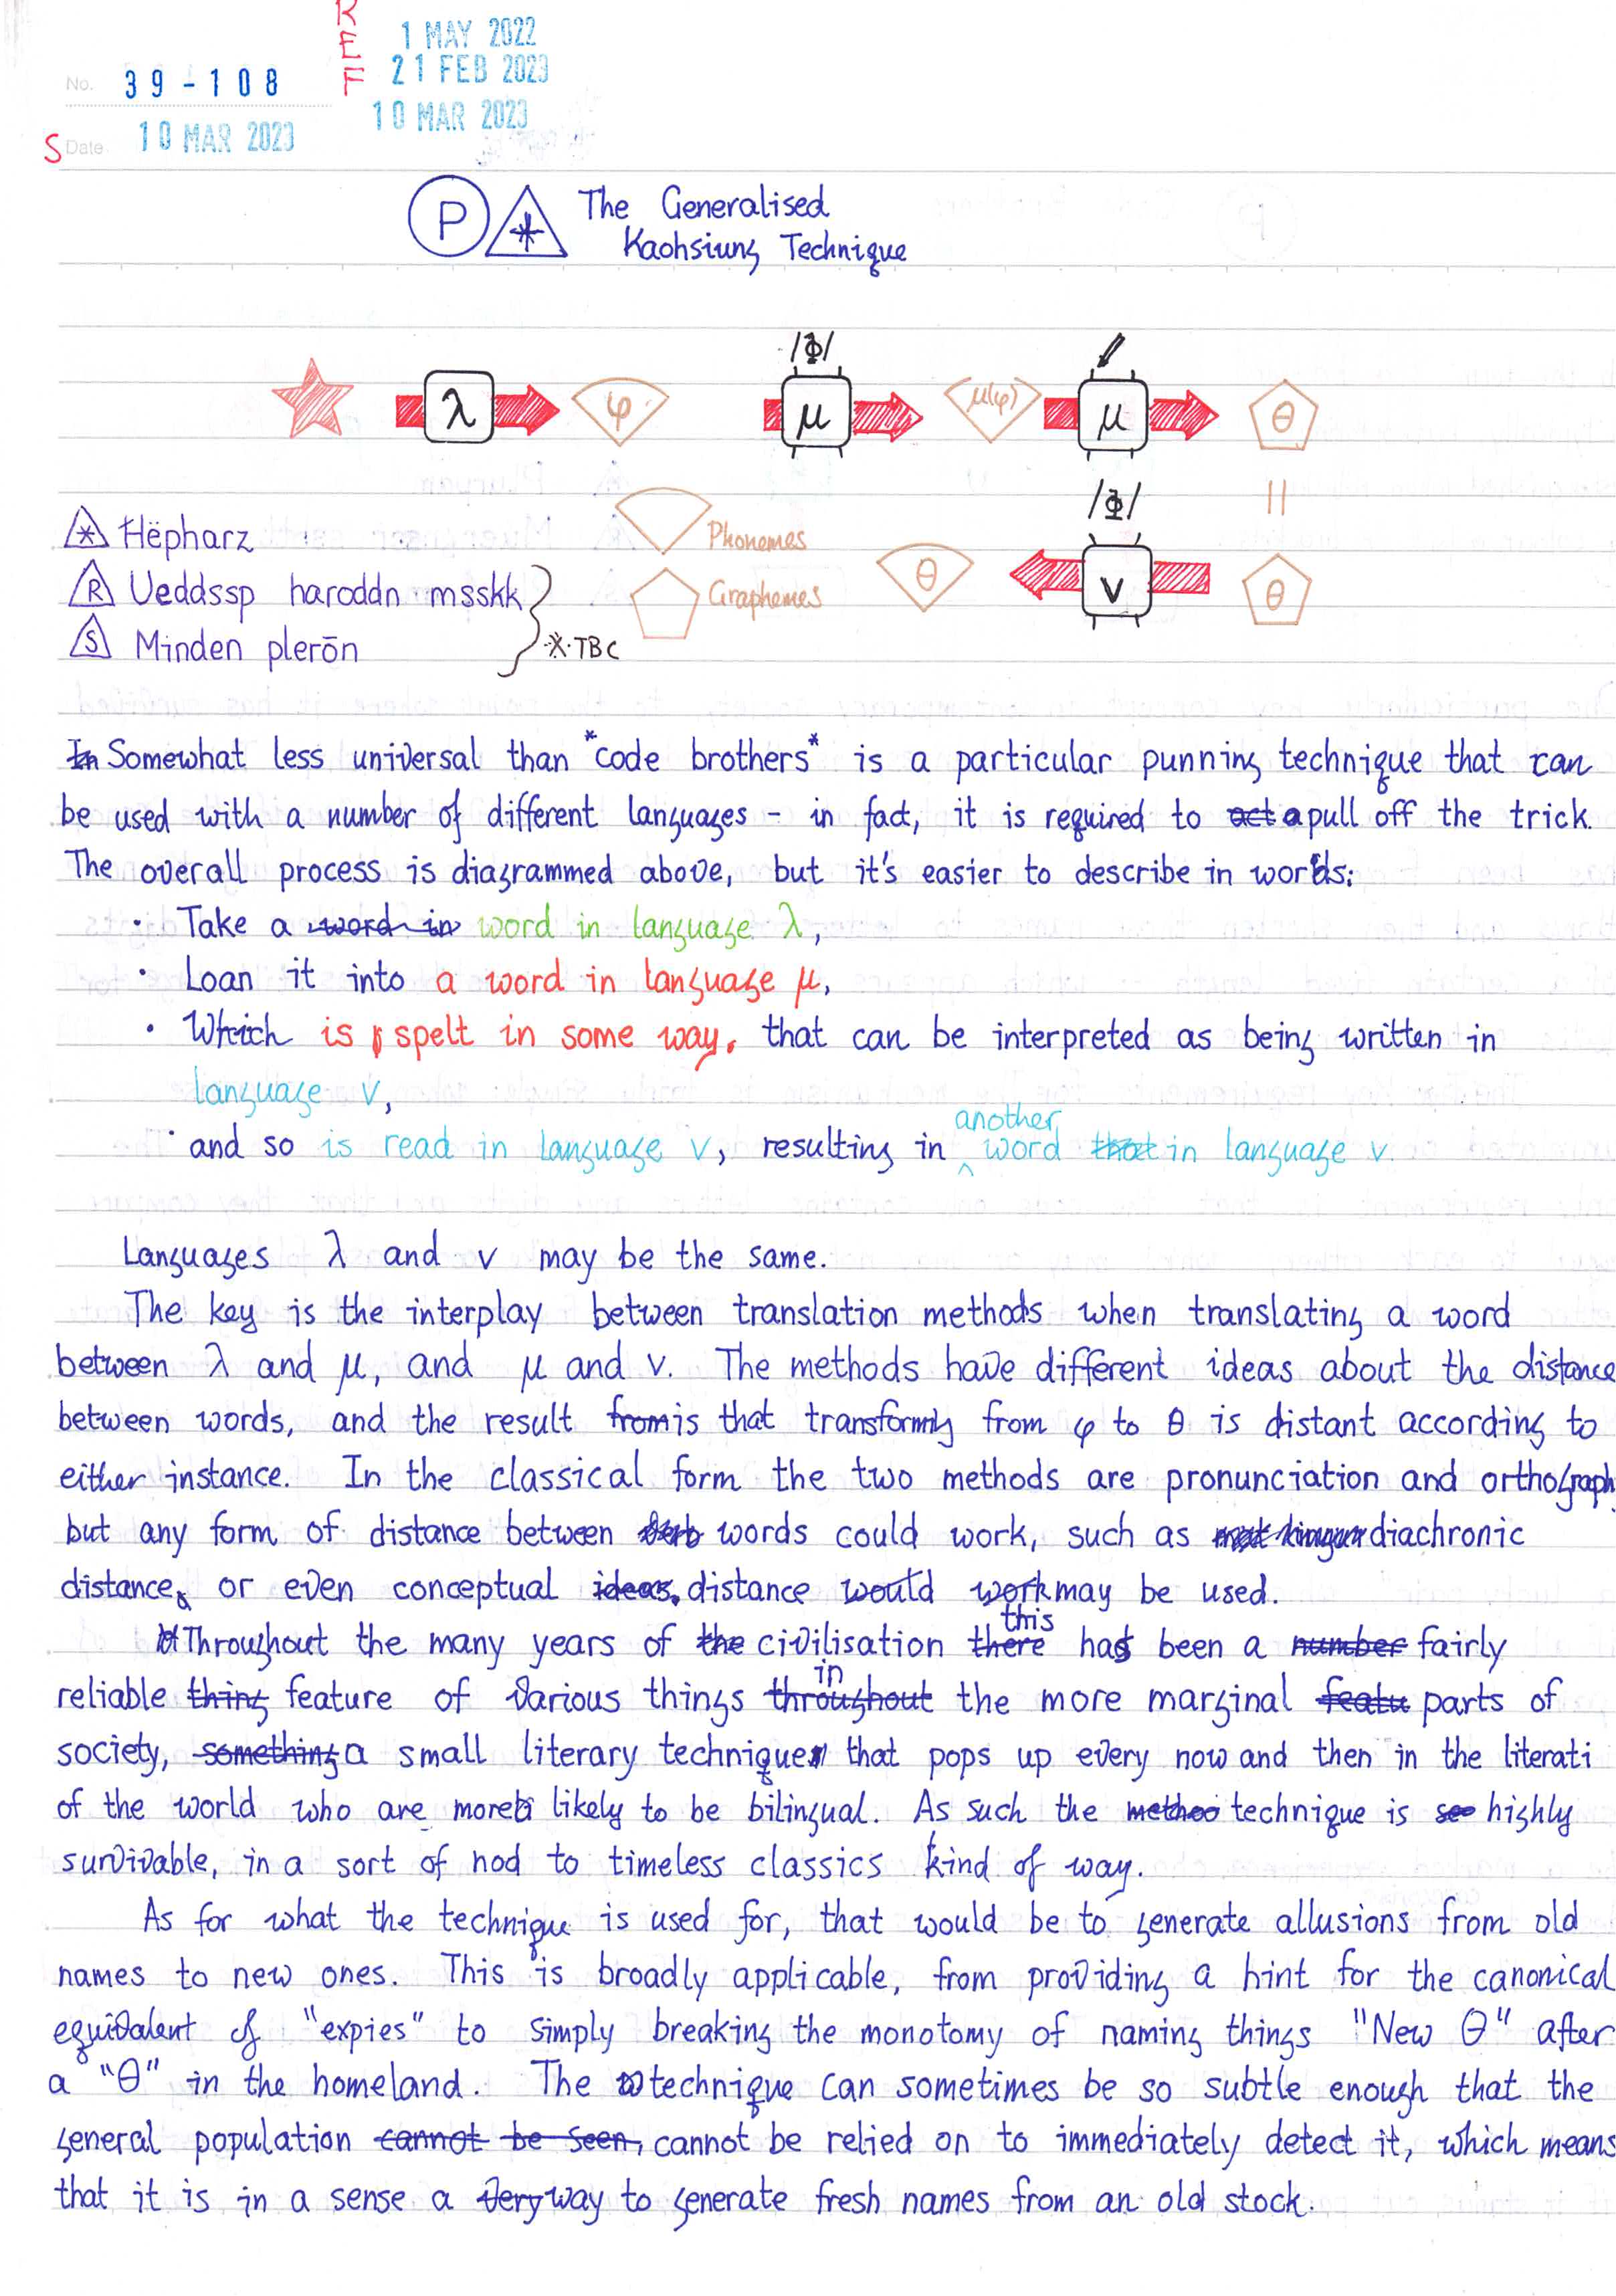 REF
1 MAY 2022
21 FEB 2023
10 MAR 2023
No. 39-108
S Date 10 MAR 2023
P * The Generalised
Kaohsiung Technique
/Φ/
λ φ μ μ(φ) μ θ
/Φ/ =
* Hëpharz
Phonemes
θ ν θ
R Ueddssp haroddn msskk
Graphemes
S Minden plerōn
*·TBC
In Somewhat less universal than *code brothers* is a particular punning technique that can
be used with a number of different languages - in fact, it is required to act a pull off the trick.
The overall process is diagrammed above, but it's easier to describe in words:
· Take a word in word in language λ,
· Loan it into a word in language μ,
· Which is spelt in some way, that can be interpreted as being written in
language ν,
· and so is read in language ν, resulting in another word that in language ν.
Languages λ and ν may be the same.
The key is the interplay between translation methods when translating a word
between λ and μ, and μ and ν. The methods have different ideas about the distance
between words, and the result from is that transforming from φ to θ is distant according to
either instance. In the classical form the two methods are pronunciation and orthograph
but any form of distance between words could work, such as diachronic
distance, or even conceptual ideas, distance would work may be used.
Throughout the many years of the civilisation there this has been a number fairly
reliable thing feature of various things throughout in the more marginal featu parts of
society, something a small literary technique that pops up every now and then in the literati
of the world who are more likely to be bilingual. As such the methoo technique is so highly
survivable, in a sort of nod to timeless classics kind of way.
As for what the technique is used for, that would be to generate allusions from old
names to new ones. This is broadly applicable, from providing a hint for the canonical
equivalent of "expies" to simply breaking the monotomy of naming things "New θ" after
a "θ" in the homeland. The technique can sometimes be so subtle enough that the
general population cannot be seen, cannot be relied on to immediately detect it, which means
that it is in a sense a very way to generate fresh names from an old stock.